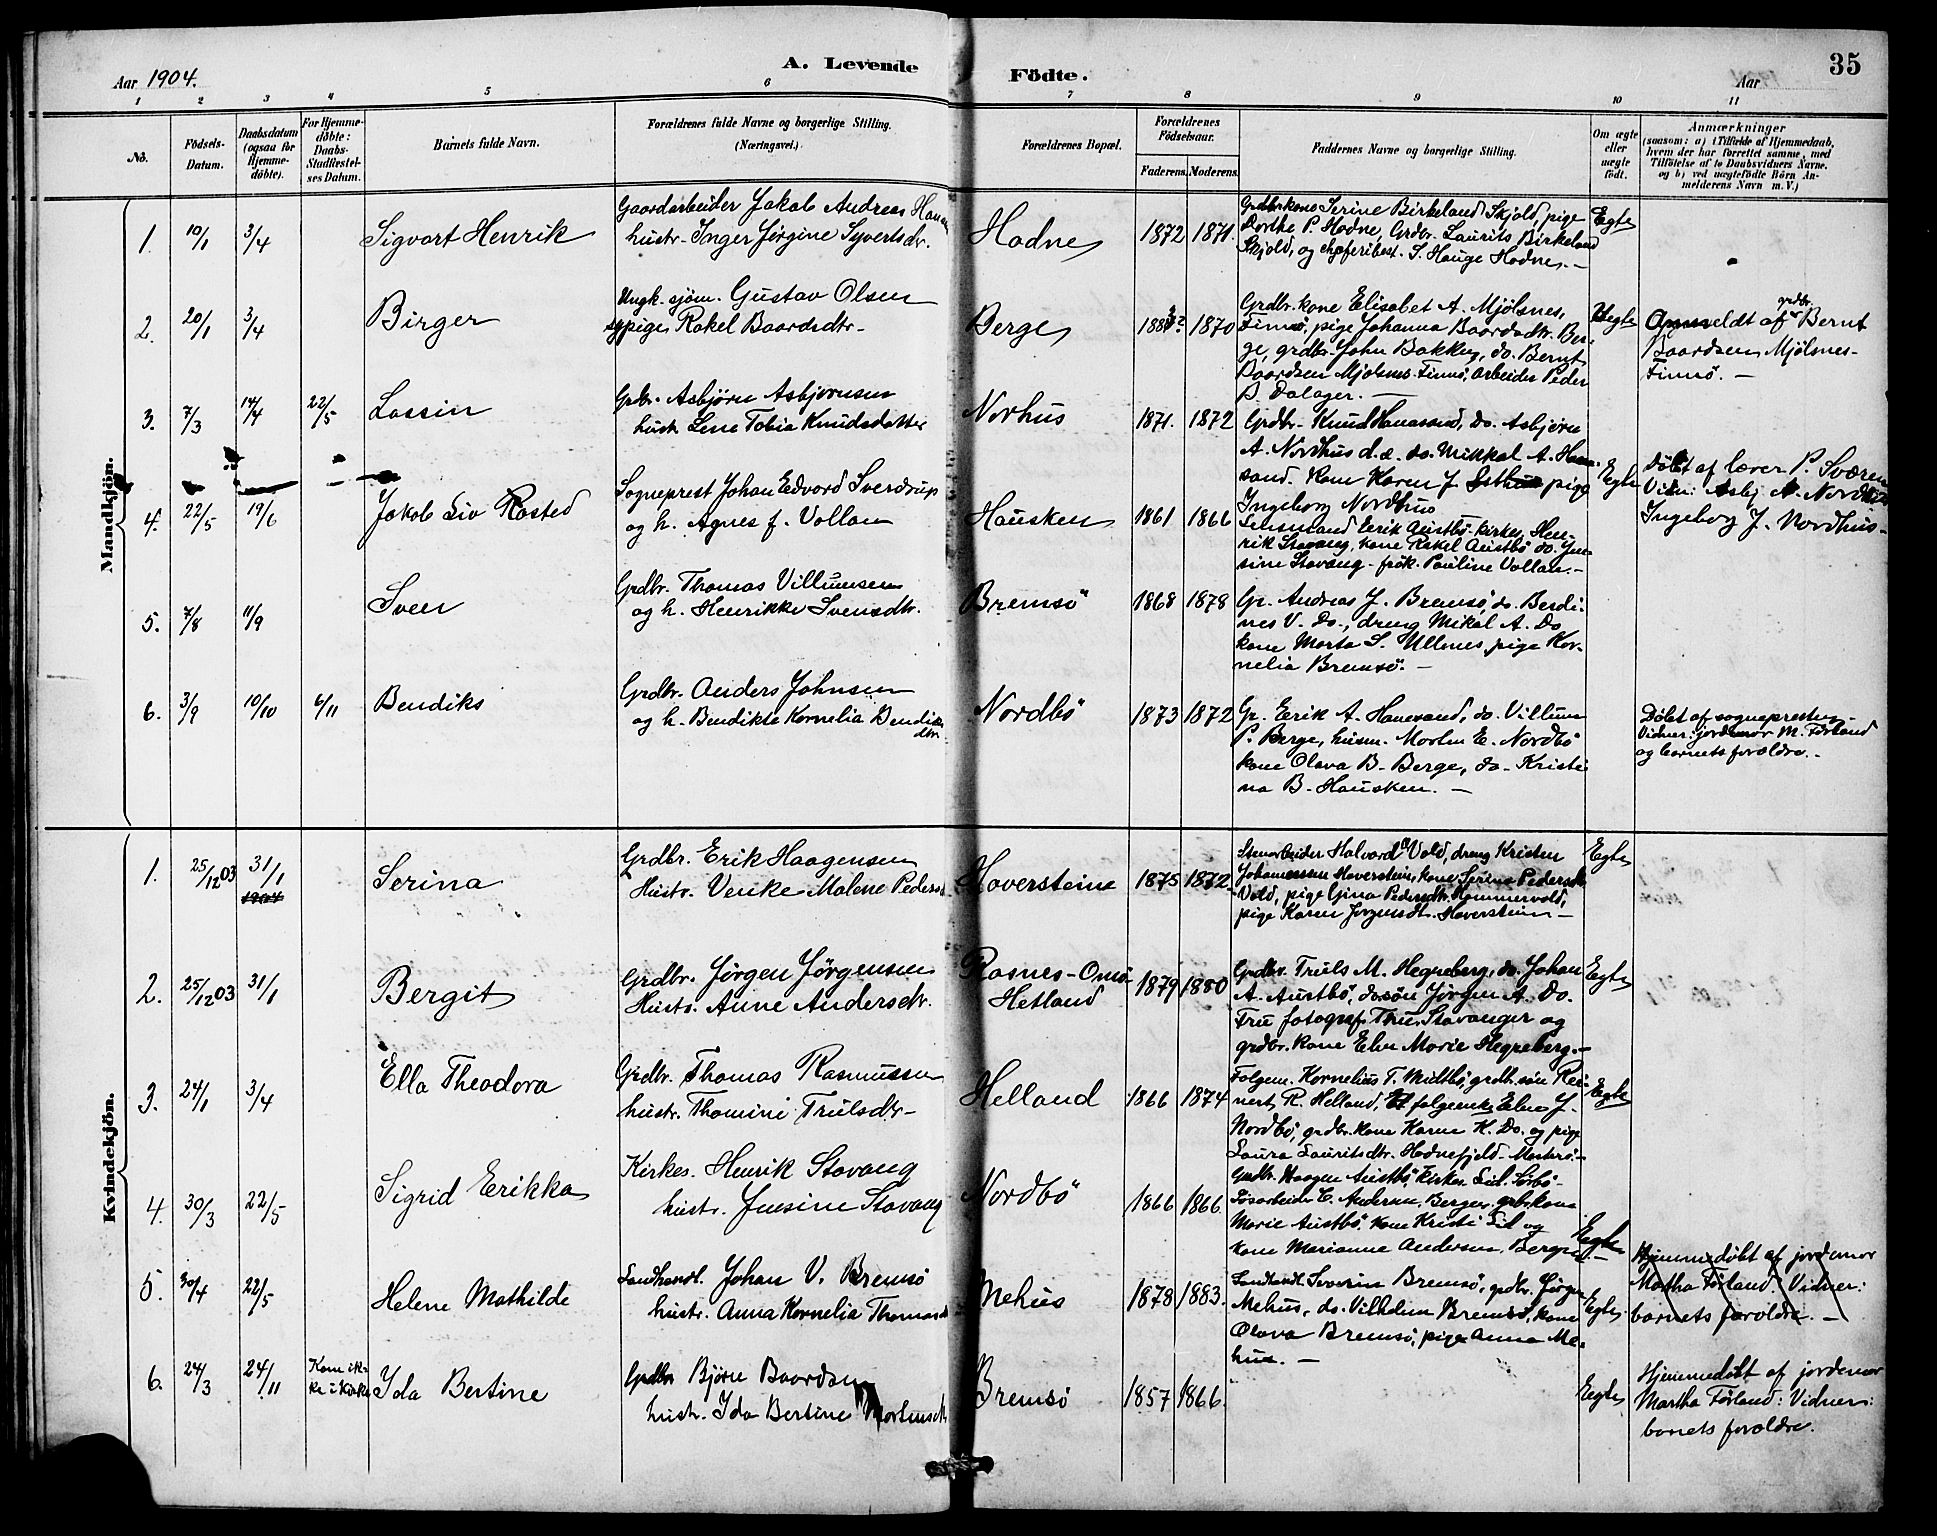 A. Levende Födte.
Aar 1904.
Aar
35
1 2 3 4 5 6 7 8 9 10 11
No.
Födsels-Datum.
Daabsdatum (ogsaa for Hjemme-döbte).
For Hjemme-döbte: Daabs-Stadfæstel-ses Datum.
Barnets fulde Navn.
Forældrenes fulde Navne og borgerlige Stilling. (Næringsvei.)
Forældrenes Bopæl.
Forældrenes Födselsaar.
Faderens. Moderens.
Faddernes Navne og borgerlige Stilling.
Om ægte eller uægte født.
Anmærkninger
(saasom: a) i Tilfælde af Hjemmedaab,
hvem der har forrettet samme, med
Tilföielse af to Daabsvidners Navne.
og b) ved uægtefödte Börn An-
melderens Navn m. V.)
Mandkjön.
1. 10/1 3/4 Sigvart Henrik
Gaardarbeider Jakob Andreas
hustr. Inger Jørgine Syvertsdr.
Hodne 1872 1871.
Grdbr.kone Serine Birkeland Skjold, pige
Dorthe P. Hodne, Grdbr. Laurits Birkeland
Skjold, og S. Hauge Hodne. —
Egte
2. 20/1 3/4 Birger
Ungk. sjöm. Gustav Olsen
pige Rakel Baardsdtr.
Berge 1870
Grdbr. kone Elisabet A. Mjölsnes,
Finnö, pige Johanna Baardsdtr. Ber-
ge, grdbr. John Bakken, do. Bernt
Baardsen Mjölsnes Finnö, Arbeider Peder
B. Dalager. —
Uegte
Anmeldt af grdbr. Bernt
Baardsen Mjölsnes-
Finnö. —
3. 7/3 14/4 22/5 Lassin
Grbr. Asbjörn Asbjörnsen
hustr. Lene Tobia Knudsdatter
Norhus 1871. 1872
Grdbr. Knud Hanasand, do. Asbjörn
A. Nordhus d.æ. do. Mikkal A. Hana-
sand. Kone Karen J. pige
Ingeborg Nordhus
Egte
Döbt af lærer P. Sværen
Vidn: Asbj. A. Nordhus
Ingeborg J. Nordhus-
4. 22/5 19/6 Jakob Liv Rosted
Sogneprest Johan Edvard Sverdrup
og h. Agnes f. Vollan
Hausken 1861 1866
Lensmand Eerik Austbö kirkes. Hen-
rik Stavang, kone Rakel Austbö do. Jen-
sine Stavang - frök. Pauline Vollan. —
5. 7/8 11/9 Sven
Grdbr. Thomas Villumsen
og h. Henrikke Svensdtr.
Bremsö 1868 1878
Gr. Andreas J. Bremsö, do. Berdi-
nes V. Do., dreng Mikal A. Do
kone Marta S. Ullenes, pige Kor-
nelia Bremsö. —
6. 3/9 10/10 6/11 Bendiks
Grdbr. Anders Johnsen
og h. Bendikte Kornelia Bendiks
dtr.
Nordbö 1873 1872
Gr. Erik A. Hanesand, do. Villum
P. Berge, husm. Morten E. Nordbö
kone Olava B. Berge, do. Kristi-
na B. Hausken. —
Döbt af sognepresten -
Vidner: jordemor M. Förland
og barnets forældre. -
Kvindekjön.
1. 25/12 03 31/1 1904 Serina
Grdbr. Erik Haagensen
Hustr. Venke Malene
Hoversteine 1875 1872
Stenarbeider Halvard Vold, dreng Kristen
Johannessen Hoverstein, kone Serine
Vold, pige Gina Pedersdtr. Hammervold,
pige Karen Jörgensdt. Hoverstein —
Egte
2. 25/12 03 31/1 Bergit
Grdbr. Jørgen Jørgensen
Hustr. Anne Andersdtr.
Rasnes-Omö
Hetland
1879 1880
Grdbr. Truls M. Hegreberg, do. Johan
A. Austbö, do søn Jörgen A. Do.
Fru fotograf Stavanger og
grdbr. kone Elen Marie Hegreberg. —
Egte
3. 24/1 3/4 Ella Theodora
Grdbr. Thomas Rasmussen
hustr. Thomine Trulsdtr-
Helland 1866 1874
Folgem. Kornelius T. Midtbö, grdbr. sön Rei-
nert R. Helland, folgeenke Elen J.
Nordbö, grdbr. kone Karen K. Do. og pige
Laura Lauritsdtr. Hodnefjeld Mosterö.-
Egte
4. 30/3 22/5 Sigrid Erikka
Kirkes. Henrik Stavang
hustr. Jensine Stavang
Nordbö 1866 1866.
Grdbr. Haagen Austbö, Kirkes. Lid. Sörbö
E. Andersen, Berge, grbr. kone
Marie Austbö, kone Kristi Lid og
kone Marianne Andersen, Berge. —
Egte
5. 30/4 22/5 Helene Mathilde
Landhandl. Johan V. Bremsö
hustr. Anna Kornelia
Mehus 1878 1883.
Landhandl. Severin Bremsö, grdbr. Jörgen
Mehus, do. Vilhelm Bremsö, kone
Olava Bremsö, pige Anna Me-
hus. —
Egte
Hjemmedöbt af jordemor
Martha Förland: Vidner:
barnets forældre. —
6. 24/3 24/11 Kom ik-
ke i kirke
Ida Bertine
Grdbr Björn Baardsen
hustr. Ida Bertine
Bremsö 1857 1866.
Egte
Hjemmedöbt af jordemor
Martha Förland: Vidner:
barnets forældre.